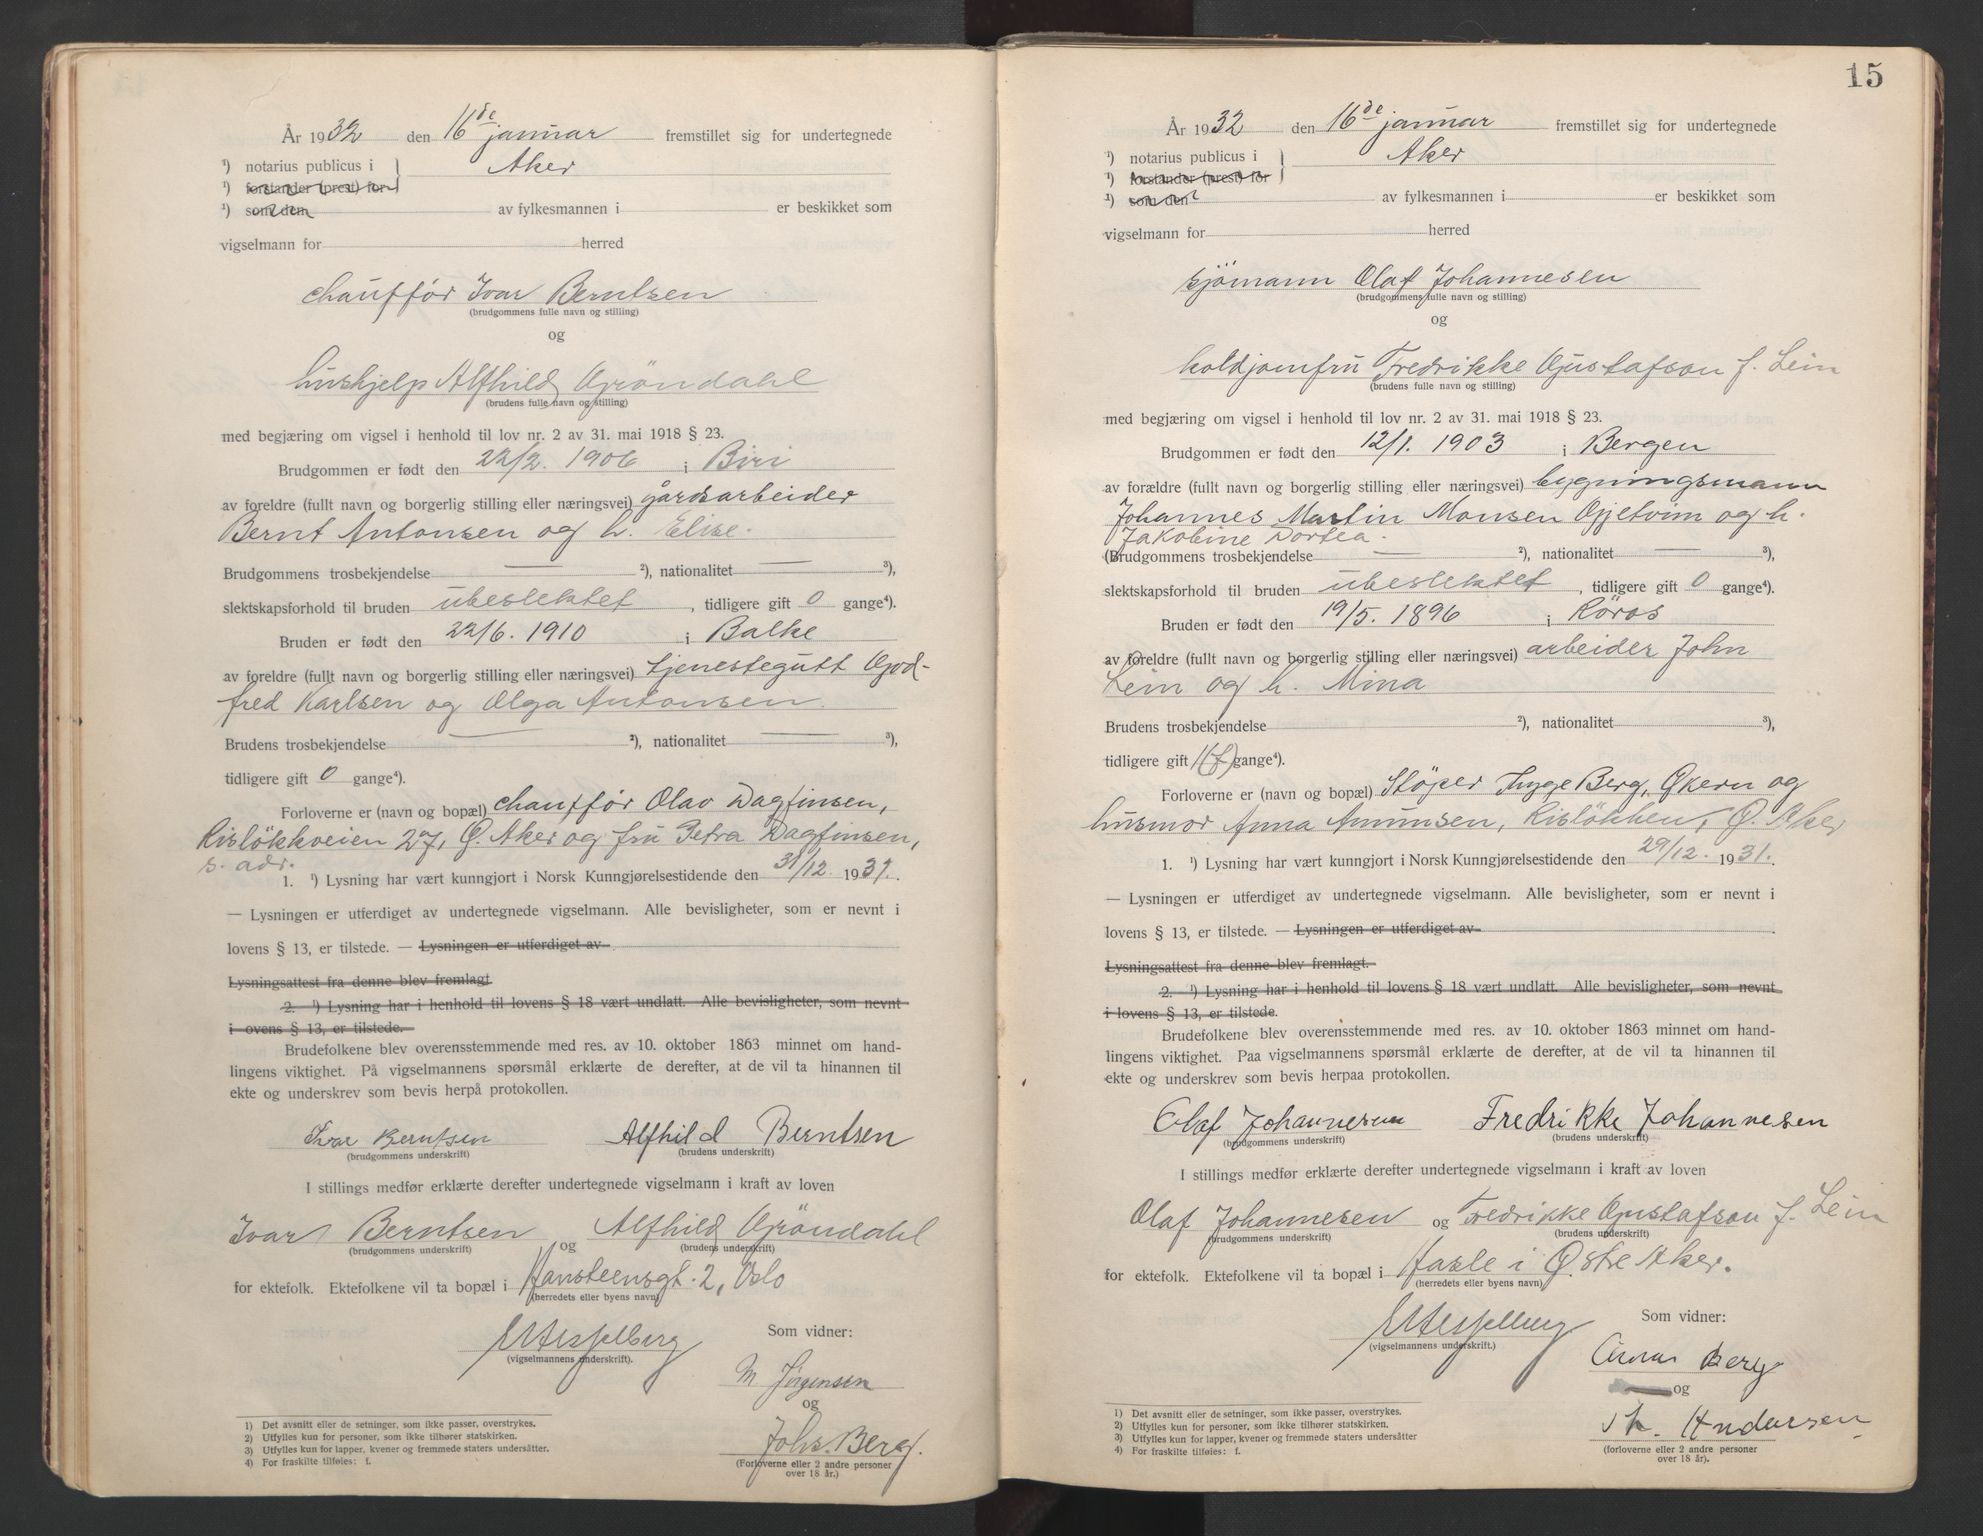 År 1932 den 16de januar fremstillet sig for undertegnede
¹) notarius publicus i Aker
¹) forstander (prest) for
¹) som den av fylkesmannen i er beskikket som
vigselmann for herred
chauffør Ivar Berntsen
(brudgommens fulle navn og stilling)
og
hushjelp Alfhild Gröndahl
(brudens fulle navn og stilling)
med begjæring om vigsel i henhold til lov nr. 2 av 31. mai 1918 § 23.
Brudgommen er født den 22/2. 1906 i Biri
av foreldre (fullt navn og borgerlig stilling eller næringsvei) gårdsarbeider
Bernt Antonsen og h. Elise.
Brudgommens trosbekjendelse — ²), nationalitet — ³),
slektskapsforhold til bruden ubeslektet, tidligere gift 0 gange⁴).
Bruden er født den 22/6. 1910 i Balke
av foreldre (fullt navn og borgerlig stilling eller næringsvei) tjenestegutt God-
fred Karlsen og Olga Antonsen.
Brudens trosbekjendelse — ²), nationalitet — ³),
tidligere gift 0 gange⁴).
Forloverne er (navn og bopæl) chauffør Olav Dagfinsen,
Risløkkveien 27, Ø. Aker og fru Petra Dagfinsen,
s. adr.
1. ¹) Lysning har vært kunngjort i Norsk Kunngjørelsestidende den 31/12. 1931.
— Lysningen er utferdiget av undertegnede vigselmann. Alle bevisligheter, som er nevnt i
lovens § 13, er tilstede. — Lysningen er utferdiget av
Lysningsattest fra denne blev fremlagt
2. ¹) Lysning har i henhold til lovens § 18 vært undlatt. Alle bevisligheter, som nevnt
i ovens § 13, er tilstede.
Brudefolkene blev overensstemmende med res. av 10. oktober 1863 minnet om hand-
lingens viktighet. På vigselmannens spørsmål erklærte de derefter, at de vil ta hinannen til
ekte og underskrev som bevis herpå protokollen.
Ivar Berntsen Alfhild Berntsen
(brudgommens underskrift) (brudens underskrift)
I stillings medfør erklærte derefter undertegnede vigselmann i kraft av loven
Ivar Berntsen og Alfhild Gröndahl
(brudgommens underskrift) (brudens underskrift)
for ektefolk. Ektefolkene vil ta bopæl i Hansteensgt. 2, Oslo
(herredets eller byens navn)
(vigselmannens underskrift).
Som vidner:
M Jörgensen
og
Johs. Berg.
(Forloverne eller 2 andre personer
over 18 år.)
1) Det avsnitt eller de setninger, som ikke passer, overstrykes.
2) Utfylles kun for personer, som ikke tilhører statskirken.
3) Utfylles kun for lapper, kvener og fremmede staters undersåtter.
4) For fraskilte tilføies: f.
15
År 1932 den 16de januar fremstillet sig for undertegnede
¹) notarius publicus i Aker
¹) forstander (prest) for
¹) som den av fylkesmannen i er beskikket som
vigselmann for herred
sjömann Olaf Johannesen
(brudgommens fulle navn og stilling)
og
koldjomfru Fredrikke Gustafson f. Lein
(brudens fulle navn og stilling)
med begjæring om vigsel i henhold til lov nr. 2 av 31. mai 1918 § 23.
Brudgommen er født den 12/1. 1903 i Bergen
av forældre (fullt navn og borgerlig stilling eller næringsvei) bygningsmann
Johannes Martin Monsen Gjetvim og h.
Jakobine Dortea.
(Brudgommens trosbekjendelse — ²), nationalitet — ³),
slektskapsforhold til bruden ubeslektet, tidligere gift 0 gange⁴).
Bruden er født den 19/5. 1896 i Röros
av foreldre (fullt navn og borgerlig stilling eller næringsvei) arbeider John
Lein og h. Mina
Brudens trosbekjendelse ²), nationalitet ³),
tidligere gift 1(f) gange⁴).
Forloverne er (navn og bopæl) Stöper Trygve Berg, Økern og
husmor Anna Amunsen, Risløkken, Ø. Aker
1. ¹) Lysning har vært kunngjort i Norsk Kunngjørelsestidende den 29/12. 1931.
— Lysningen er utferdiget av undertegnede vigselmann. Alle bevisligheter, som er nevnt i
lovens § 13, er tilstede. — Lysningen er utferdiget av
Lysningsattest fra denne blev fremlagt.
2. ¹) Lysning har i henhold til lovens § 18 vært undlatt. Alle bevisligheter, som nevnt
i lovens § 13, er tilstede.
Brudefolkene blev overensstemmende med res. av 10. oktober 1863 minnet om hand-
lingens viktighet. Paa vigselmannens spørsmål erklærte de derefter, at de vil ta hinannen til
ekte og underskrev som bevis herpaa protokollen.
Olaf Johannesen Fredrikke Johannesen
(brudgommens underskrift) (brudens underskrift)
I stillings medfør erklærte derefter undertegnede vigselmann i kraft av loven
Olaf Johannesen og Fredrikke Gustafson f. Lein
(brudgommens underskrift) (brudens underskrift)
for ektefolk. Ektefolkene vil ta bopæl i Hasle i Østre Aker.
(herredets eller byens navn)
(vigselmannens underskrift.)
Som vidner:
Berg
og
Th. Andersen
(forloverne eller 2 andre personer
over 18 år).
1) Det avsnitt eller de setninger, som ikke passer, overstrykes.
2) Utfylles kun for personer, som ikke tilhører statskirken.
3) Utfylles kun for lapper, kvener og fremmede staters undersåtter
4) For fraskilte tilføies: f.